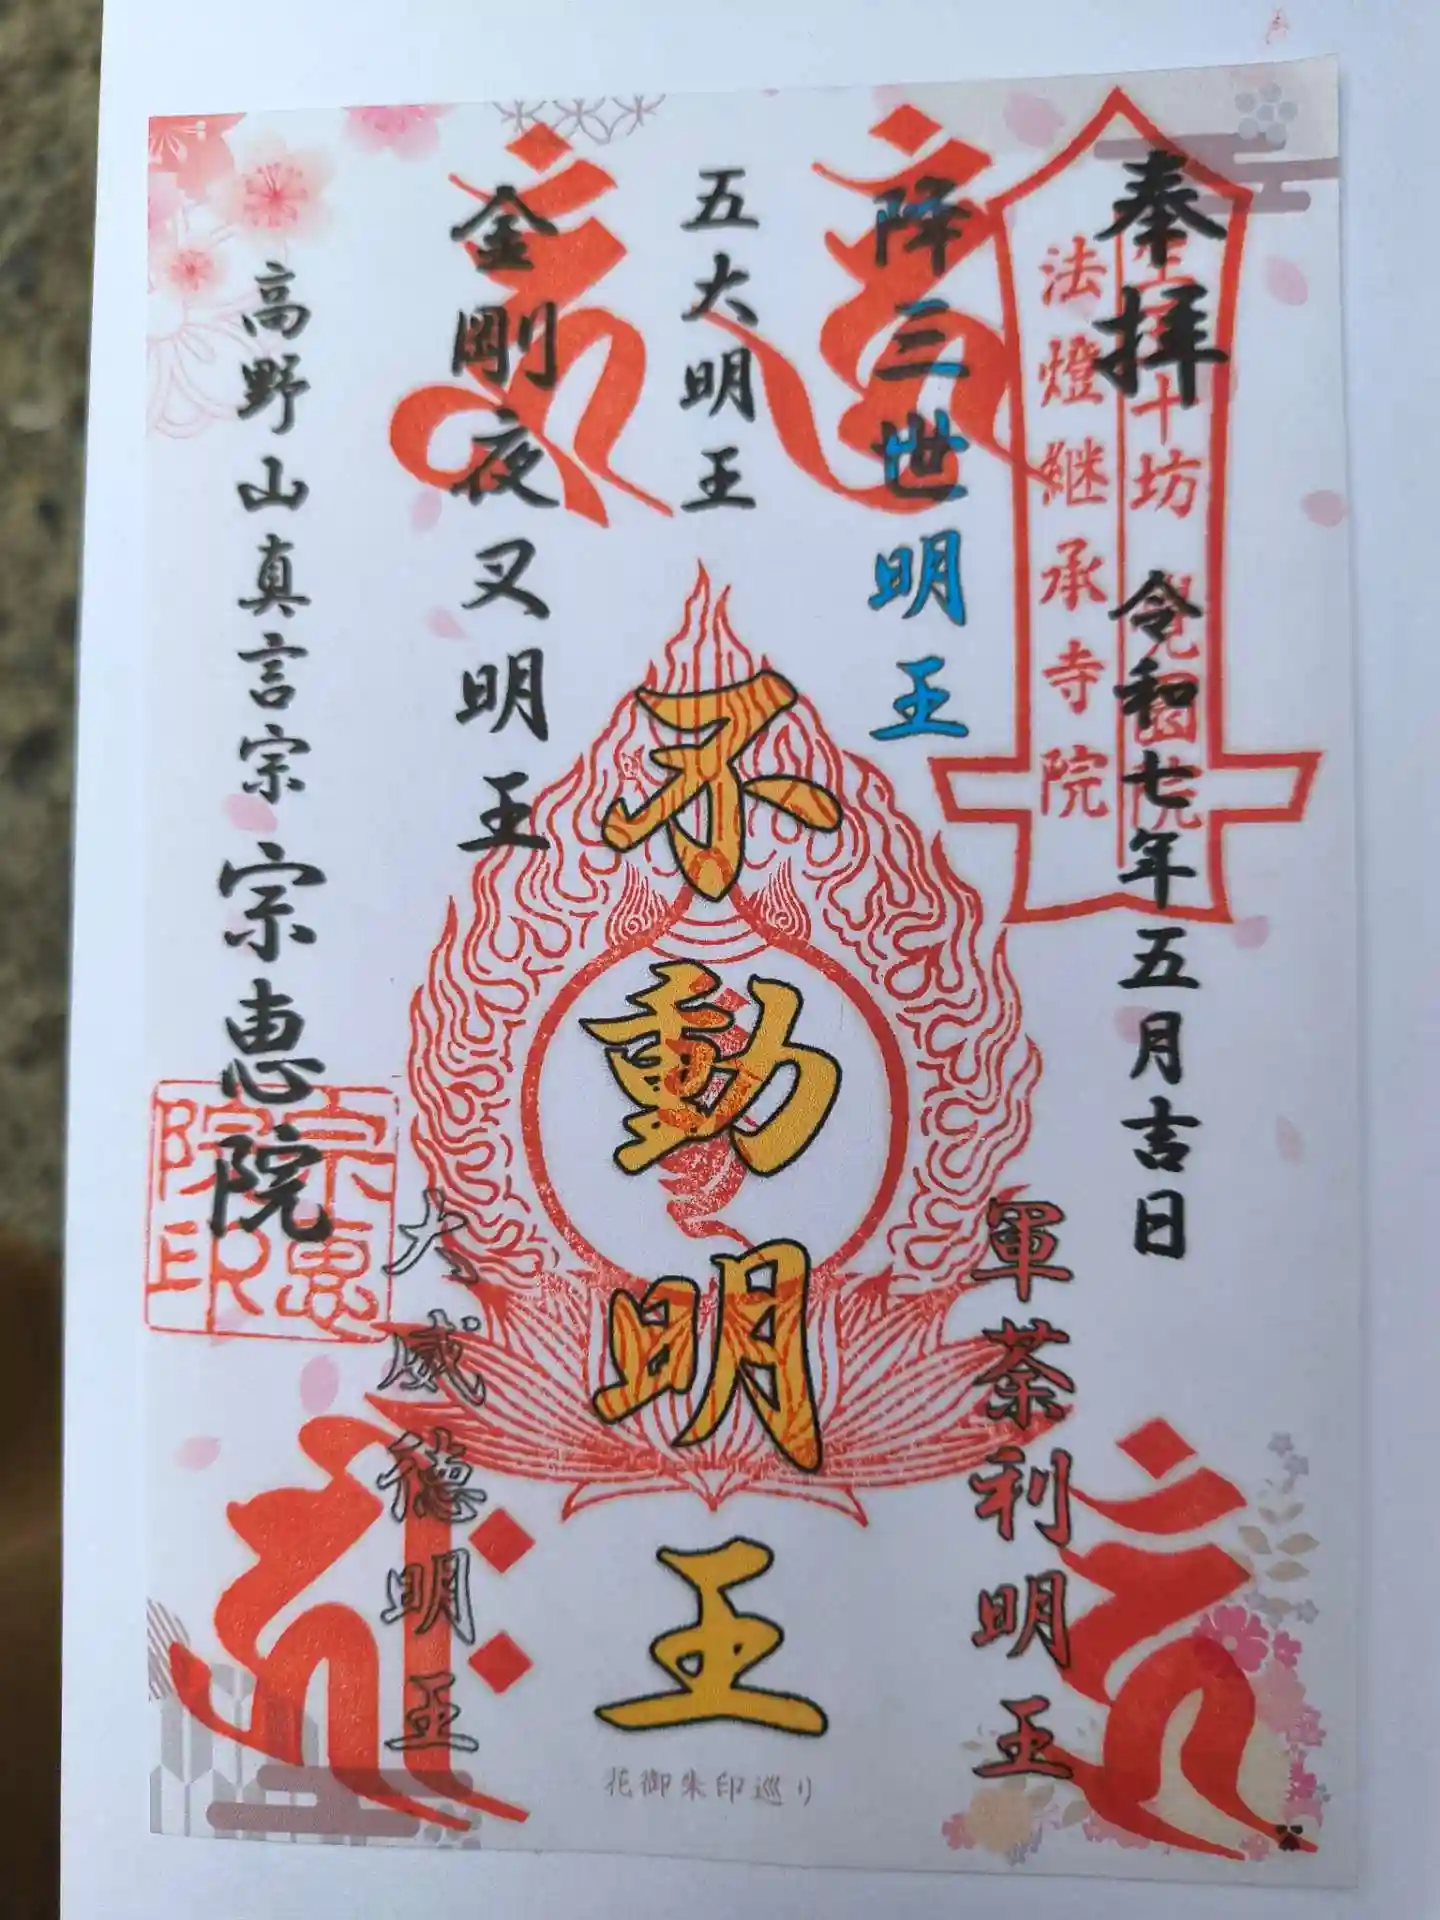 奉拝
令和七年五月吉日
十坊
法燈継承寺院
降三世明王
軍荼利明王
五大明王
不動明王
金剛夜叉明王
大威徳明王
高野山真言宗
宗恵院
宗恵院印
花御朱印巡り